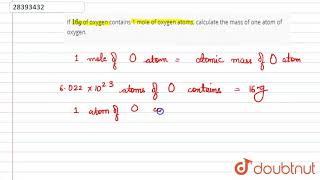 28393432
If 16g of oxygen contains 1 mole of oxygen atoms, calculate the mass of one atom of
oxygen.
1 mole of O atom = atomic mass of O atom
6.022 × 10²³ atoms of O contains = 16g
1 atom of O co
doubtnut